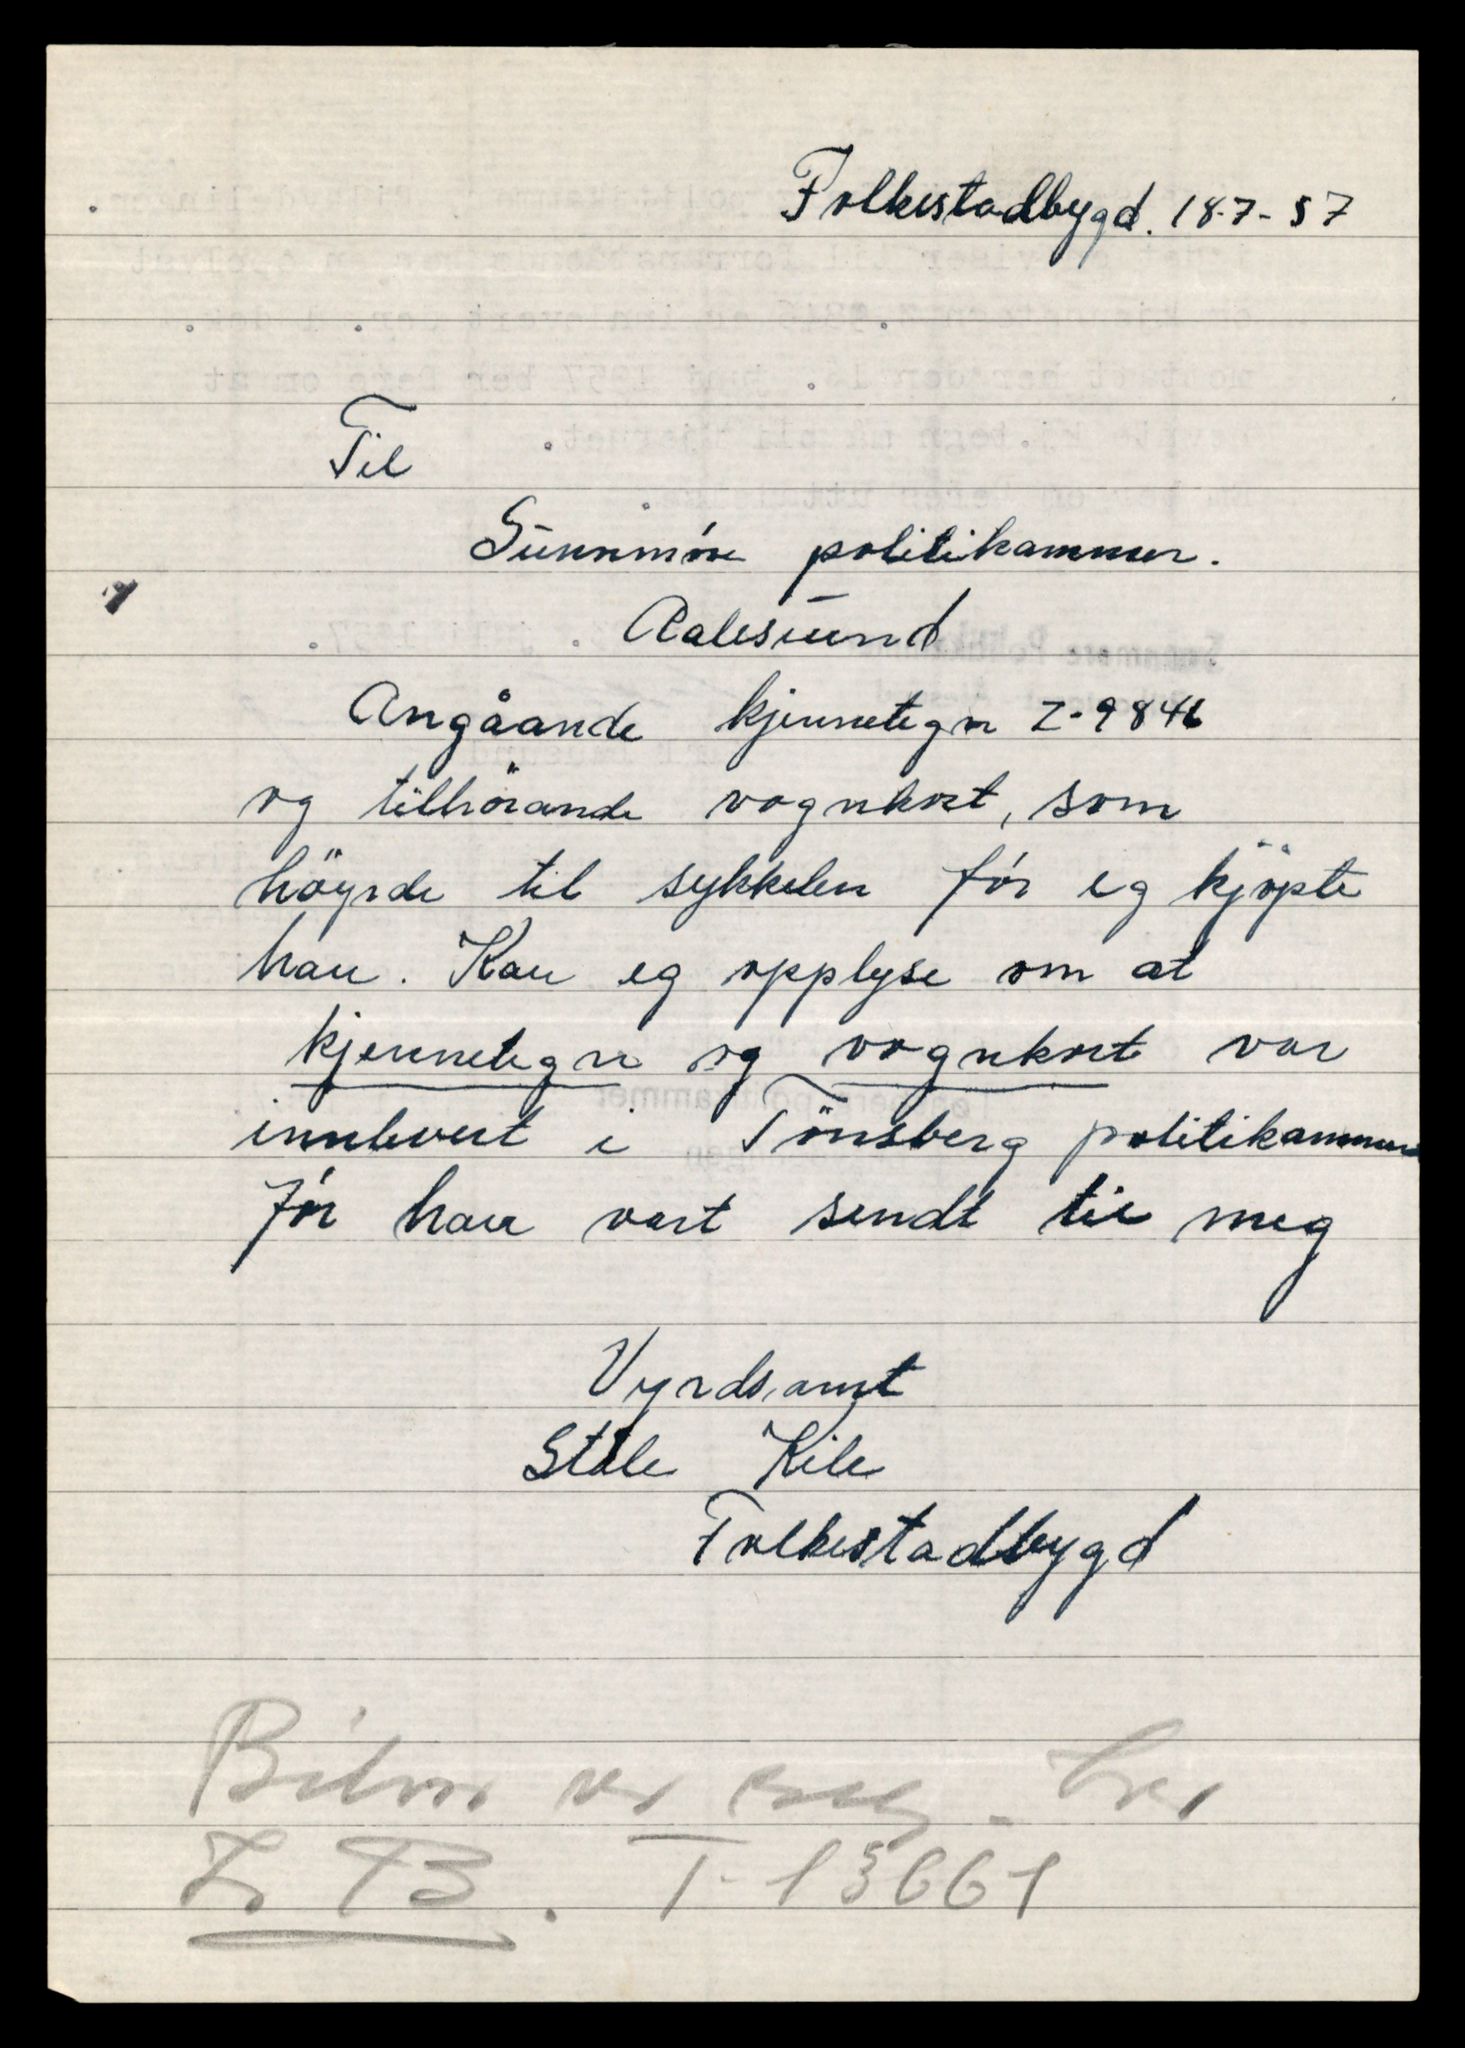 Folkestadbygd. 18-7-57
Til
Sunnmöre politikammer.
Aalesund
Angåande kjennetegn Z-9846
og tilhörande vognkort, som
höyrde til sykkelen för eg kjöpte
han. Kan eg opplyse om at
kjennetegn og vognkort var
innlevert i Tönsberg politikammer
för han vart sendt til meg
Vyrdsamt
Ståle Kile
Folkestadbygd
T-13661